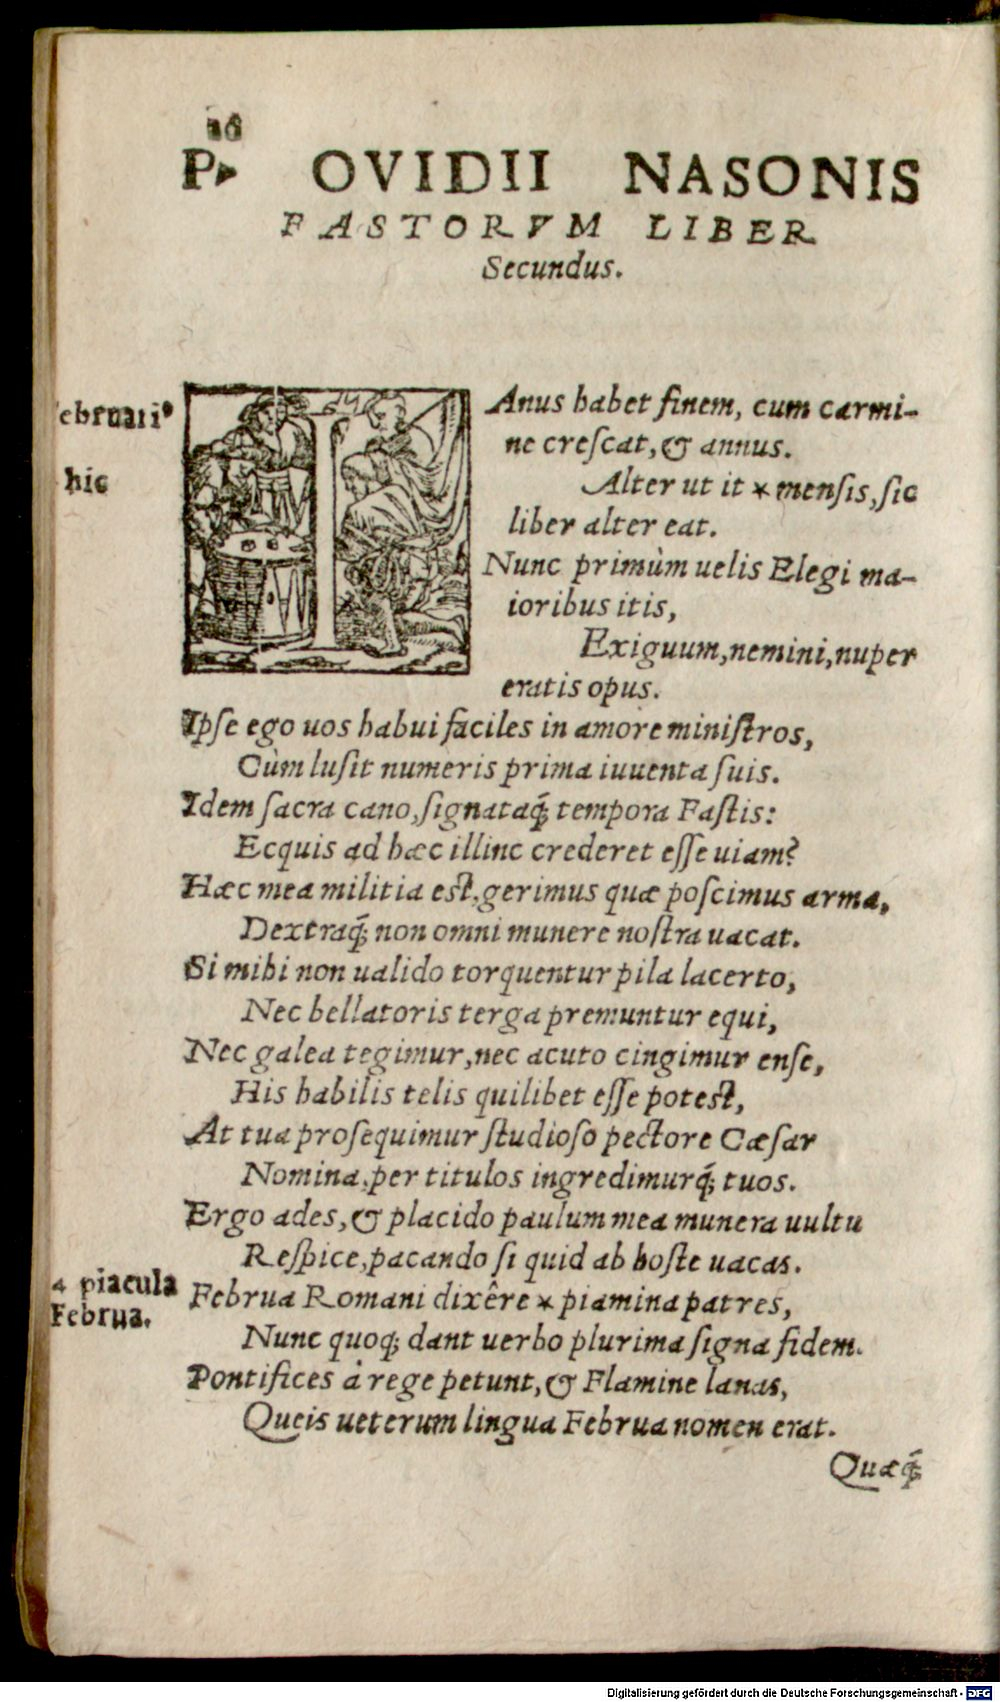 26
P. OVIDII NASONIS
FASTORVM LIBER
Secundus.
IAnus habet finem, cum carmi-
ne creſcat, & annus.
Alter ut it * menſis, ſic
liber alter eat.
Nunc primùm uelis Elegi ma-
ioribus itis,
Exiguum, nemini, nuper
eratis opus.
Ipſe ego uos habui faciles in amore miniſtros,
Cùm luſit numeris prima iuuenta ſuis.
Idem ſacra cano, ſignataq́; tempora Faſtis:
Ecquis ad hæc illinc crederet eſſe uiam?
Hæc mea militia eſt, gerimus quæ poſcimus arma,
Dextraq́; non omni munere noſtra uacat.
Si mihi non ualido torquentur pila lacerto,
Nec bellatoris terga premuntur equi,
Nec galea tegimur, nec acuto cingimur enſe,
His habilis telis quilibet eſſe poteſt,
At tua proſequimur ſtudioſo pectore Cæſar
Nomina, per titulos ingredimurq́; tuos.
Ergo ades, & placido paulum mea munera uultu
Reſpice, pacando ſi quid ab hoſte uacas.
Februa Romani dixêre * piamina patres,
Nunc quoq; dant uerbo plurima ſigna fidem.
Pontifices à rege petunt, & Flamine lanas,
Queis ueterum lingua Februa nomen erat.
Quæq́;
ebruariꝰ
hic
piacula
Februa.
Digitalisierung gefördert durch die Deutsche Forschungsgemeinschaft - DFG